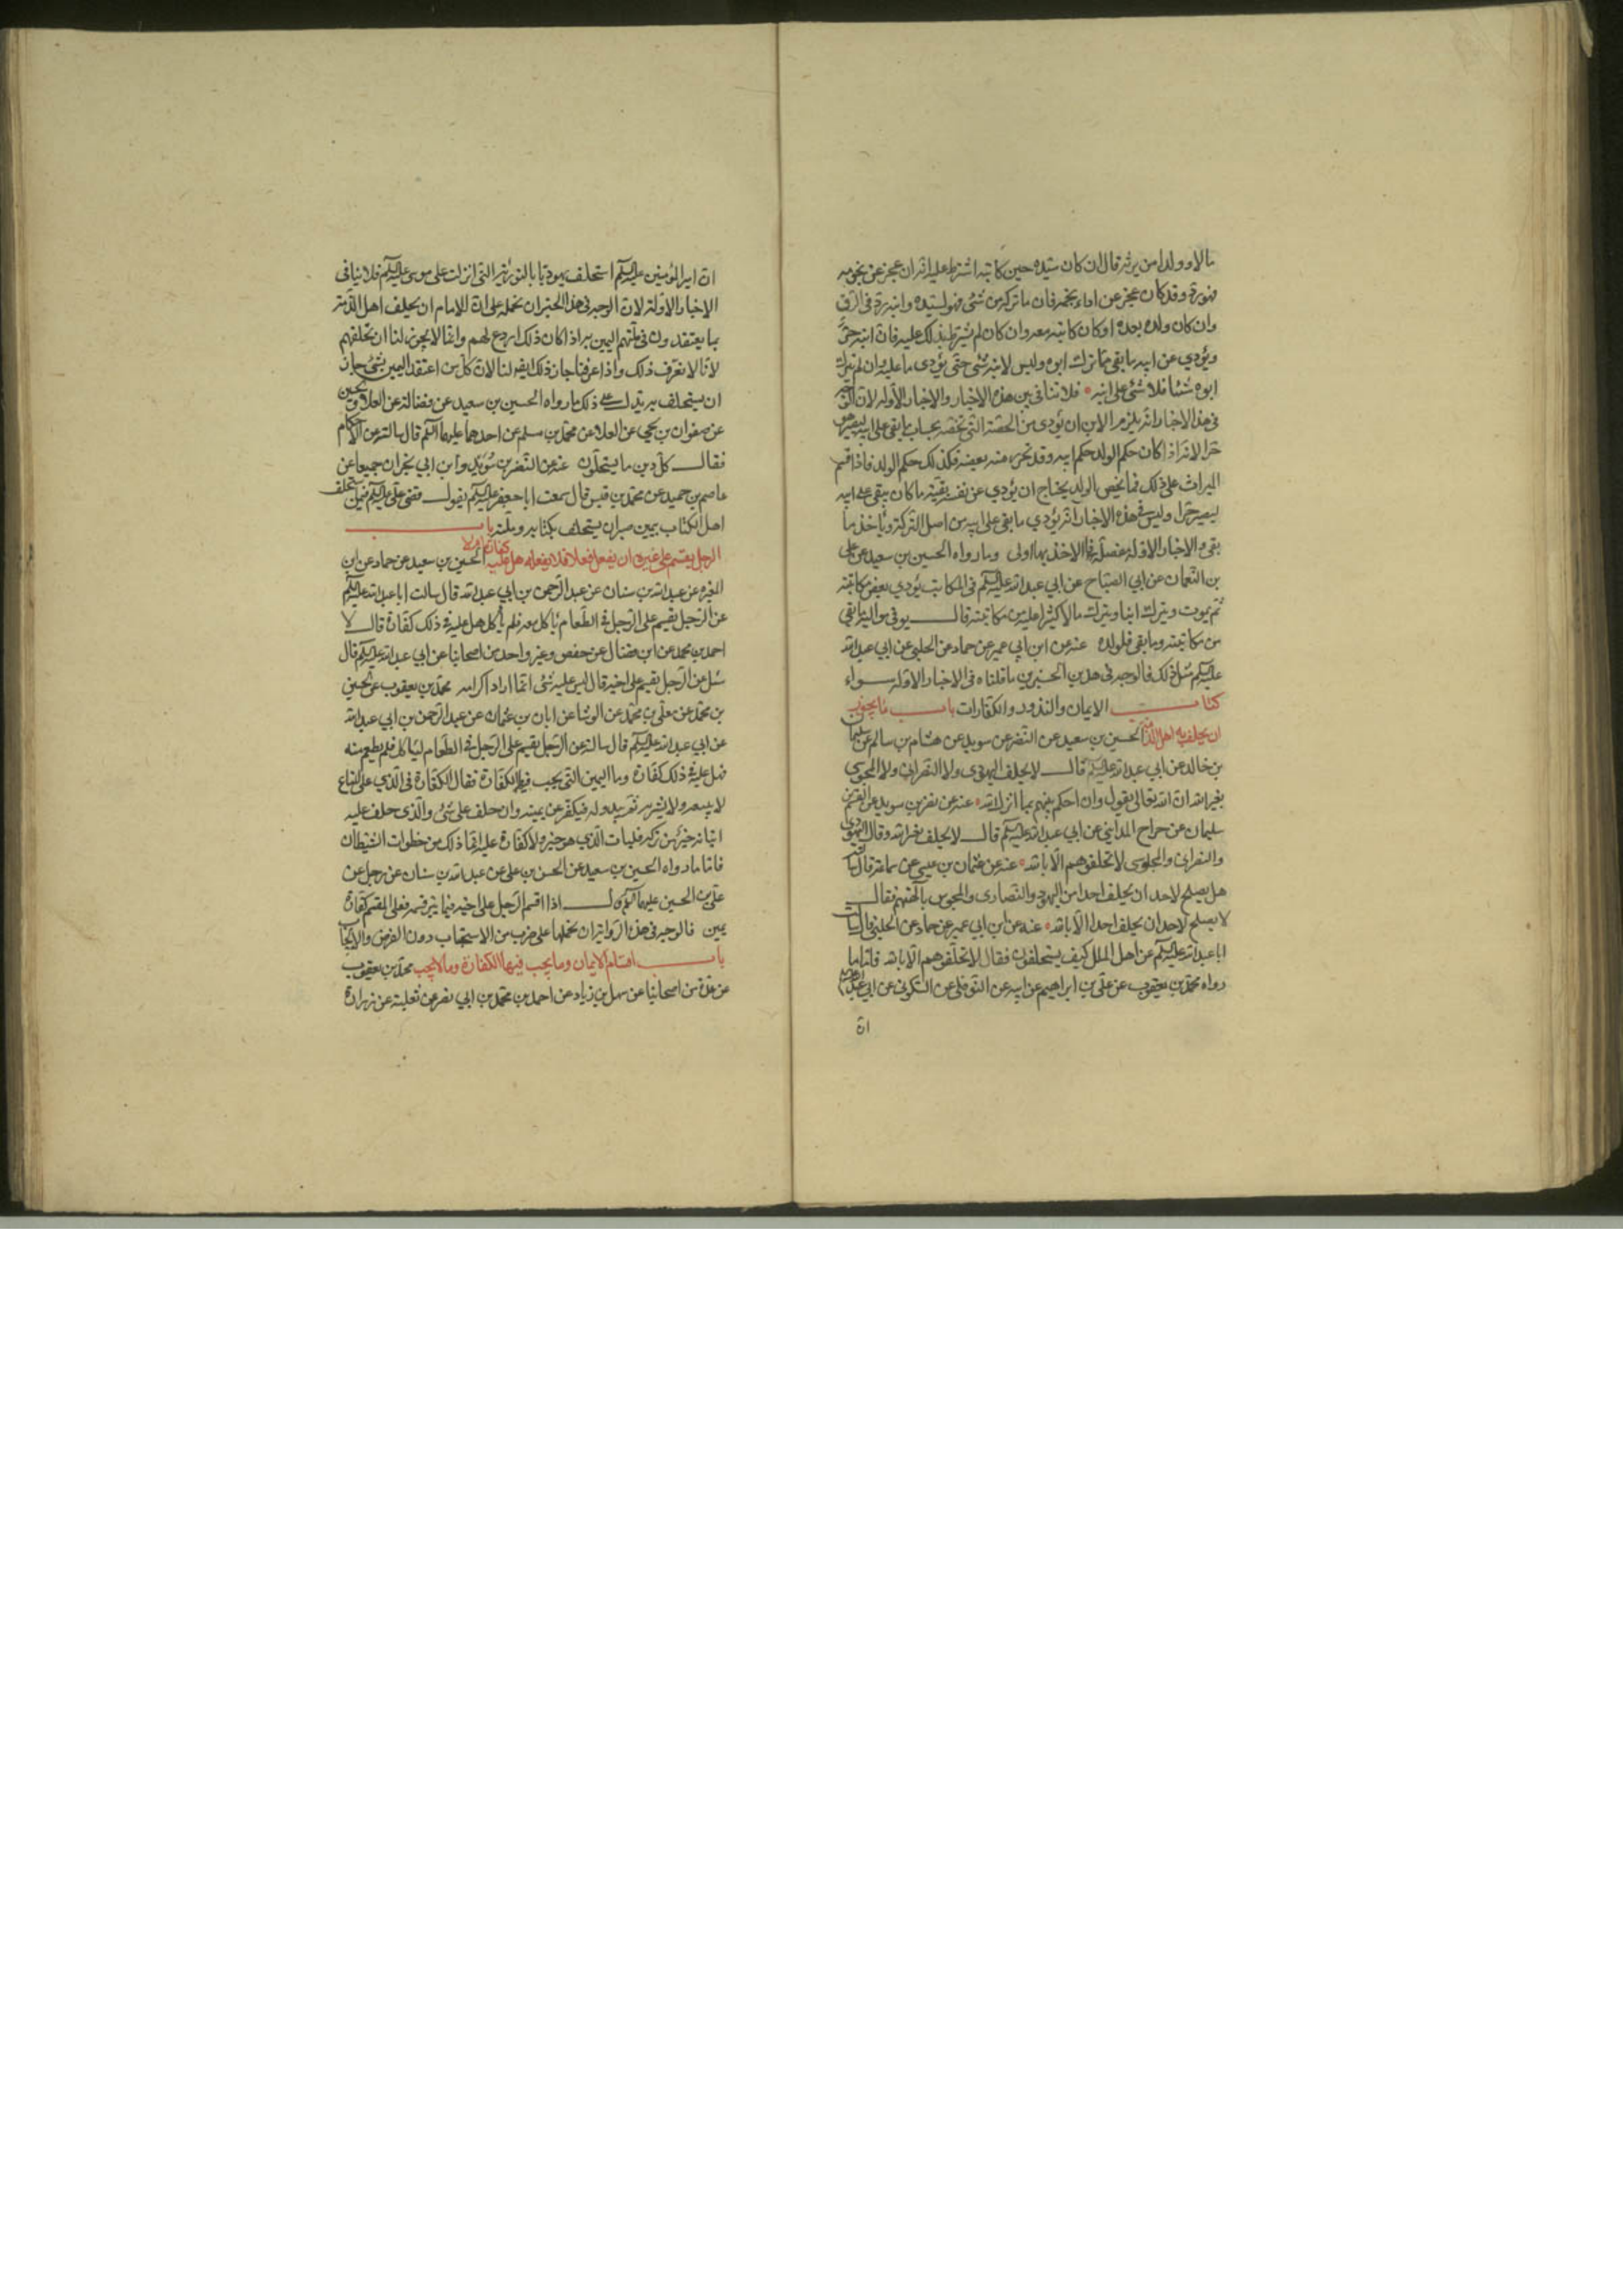 مالا وولدا من يرثه قال ان كان سيده حين كاتبه اشترط عليه انه ان عجز عن نجومه
فهو رد وقد كان عجز عن اداء نجمه فان ما ترك من شئ فهو لسيده وابنه رد في الرق
وان كان ولده بعده او كان كاتبه معه وان كان لم يشترط ذلك عليه فان ابنه حر
ويؤدي عن ابيه ما بقي مما ترك ابوه وليس لابنه شئ حتى يؤدي ما عليه وان لم يترك
ابوه شيئا فلا شئ على ابنه فلا تنافي بين هذه الاخبار والاخبار الاوله لان الوجه
في هذه الاخبار انه يلزم الابن ان يؤدى من الحصة التي تخصه بحساب ما بقي على ابيه ليصير هو
حرا لانه اذا كان حكم الولد حكم ابيه وقد تحرر منه بعضه فكذلك حكم الولد فاذا قسم
الميراث على ذلك فما يخص الولد يحتاج ان يؤدي عن نفسه بقية ما كان بقي على ابيه
ليصير حرا وليس في هذه الاخبار انه يؤدي ما بقي على ابيه من اصل التركة وياخذ ما
بقي والاخبار الاوله مفصلة فالاخذ بها اولى وما رواه الحسين بن سعيد عن علي
بن النعمان عن ابي الصباح عن ابي عبد الله عليه السلم في المكاتب يؤدي بعض مكاتبته
ثم يموت ويترك ابنا ويترك مالا اكثر مما عليه من مكاتبته قال يوفى مواليه ما بقي
من مكاتبته وما بقي فلولده عنه عن ابن ابي عمير عن حماد عن الحلبي عن ابي عبد الله
عليه السلم مثل ذلك فالوجه في هذين الخبرين ما قلناه في الاخبار الاوله سواء
كتاب الايمان والنذور والكفارات باب ما يجوز
ان يحلف به اهل الذمة الحسين بن سعيد عن النضر عن سويد عن هشام بن سالم عن سليمان
بن خالد عن ابي عبد الله عليه السلم قال لا يحلف اليهودي ولا النصراني ولا المجوسي
بغير الله ان الله تعالى يقول وان احكم بينهم بما انزل الله عنه عن نضر بن سويد عن القسم بن
سليمان عن جراح المدايني عن ابي عبد الله عليه السلم قال لا يحلف بغير الله وقال اليهودي
والنصراني والمجوسى لا تحلفوهم الا بالله عنه عن عثمان بن عيسى عن سماعة قال سالته
هل يصلح لاحد ان يحلف احدا من اليهود والنصارى والمجوس بالهتهم فقال
لا يصلح لاحد ان يحلف احدا الا بالله عنه عن ابن ابي عمير عن حماد عن الحلبي قال سالت
ابا عبد الله عليه السلم عن اهل الملل كيف يستحلفون فقال لا تحلفوهم الا بالله فاما ما
رواه محمد بن يعقوب عن علي بن ابراهيم عن ابيه عن النوفلي عن السكوني عن ابي عبد الله
ان
ان امير المؤمنين عليه السلم استحلف يهوديا بالتوراية التي انزلت على موسى عليه السلم فلا ينافى
الاخبار الاولة لان الوجه في هذا الخبر ان نحمله على ان الامام ان يحلف اهل الذمة
بما يعتقدون في ملتهم اليمين به اذا كان ذلك اردع لهم وانما لا يجوز لنا ان نحلفهم
لانا لا نعرف ذلك واذا عرفنا جاز ذلك ايضا لنا لان كل من اعتقد اليمين بشئ جاز
ان يستحلف به يدل على ذلك ما رواه الحسين بن سعيد عن فضالة عن العلا والحسين
عن صفوان بن يحيى عن العلا عن محمد بن مسلم عن احدهما عليهما السلم قال سالته عن الاحكام
فقال كل دين ما يستحلون عنه عن النضر بن سويد وابن ابي نجران جميعا عن
عاصم بن حميد عن محمد بن قيس قال سمعت ابا جعفر عليه السلم يقول قضى علي عليه السلم فيمن استحلف
اهل الكتاب بيمين صبر ان يستحلف بكتابه وملته باب
الرجل يقسم على غيره ان يفعل فعلا فلا يفعله هل عليه كفارة ام لا الحسين بن سعيد عن حماد عن ابن
المغيره عن عبد الله بن سنان عن عبد الرحمن بن ابي عبد الله قال سالت ابا عبد الله عليه السلم
عن الرجل يقسم على الرجل في الطعام ياكل معه فلم ياكل هل عليه في ذلك كفارة قال لا
احمد بن محمد عن ابن فضال عن حفص وغير واحد من اصحابنا عن ابي عبد الله عليه السلم قال
سئل عن الرجل يقسم على اخيه قال ليس عليه شئ انما اراد اكرامه محمد بن يعقوب عن الحسين
بن محمد عن معلى بن محمد عن الوشا عن ابان بن عثمان عن عبد الرحمن بن ابي عبد الله
عن ابي عبد الله عليه السلم قال سالته عن الرجل يقسم على الرجل في الطعام لياكل فلم يطعم منه
فهل عليه في ذلك كفارة وما اليمين التي يجب فيها الكفارة فقال الكفارة في الذي على المتاع
لا يبيعه ولا يشتريه ثم يبدو له فيكفر عن يمينه وان حلف على شئ والذى حلف عليه
اتيانه خير من تركه فليات الذي هو خير ولا كفارة عليه انما ذلك من خطوات الشيطان
فاما ما رواه الحسين بن سعيد عن الحسن بن علي عن عبد الله بن سنان عن رجل عن
علي بن الحسين عليهما السلم قال اذا اقسم الرجل على اخيه فيما يبر قسمه فعلى المقسم كفارة
يمين فالوجه في هذه الرواية ان نحملها على ضرب من الاستحباب دون الفرض والايجاب
باب اقسام الايمان وما يجب فيها الكفارة وما لا يجب محمد بن يعقوب
عن عدة من اصحابنا عن سهل بن زياد عن احمد بن محمد بن ابي نصر عن ثعلبة عن زرارة